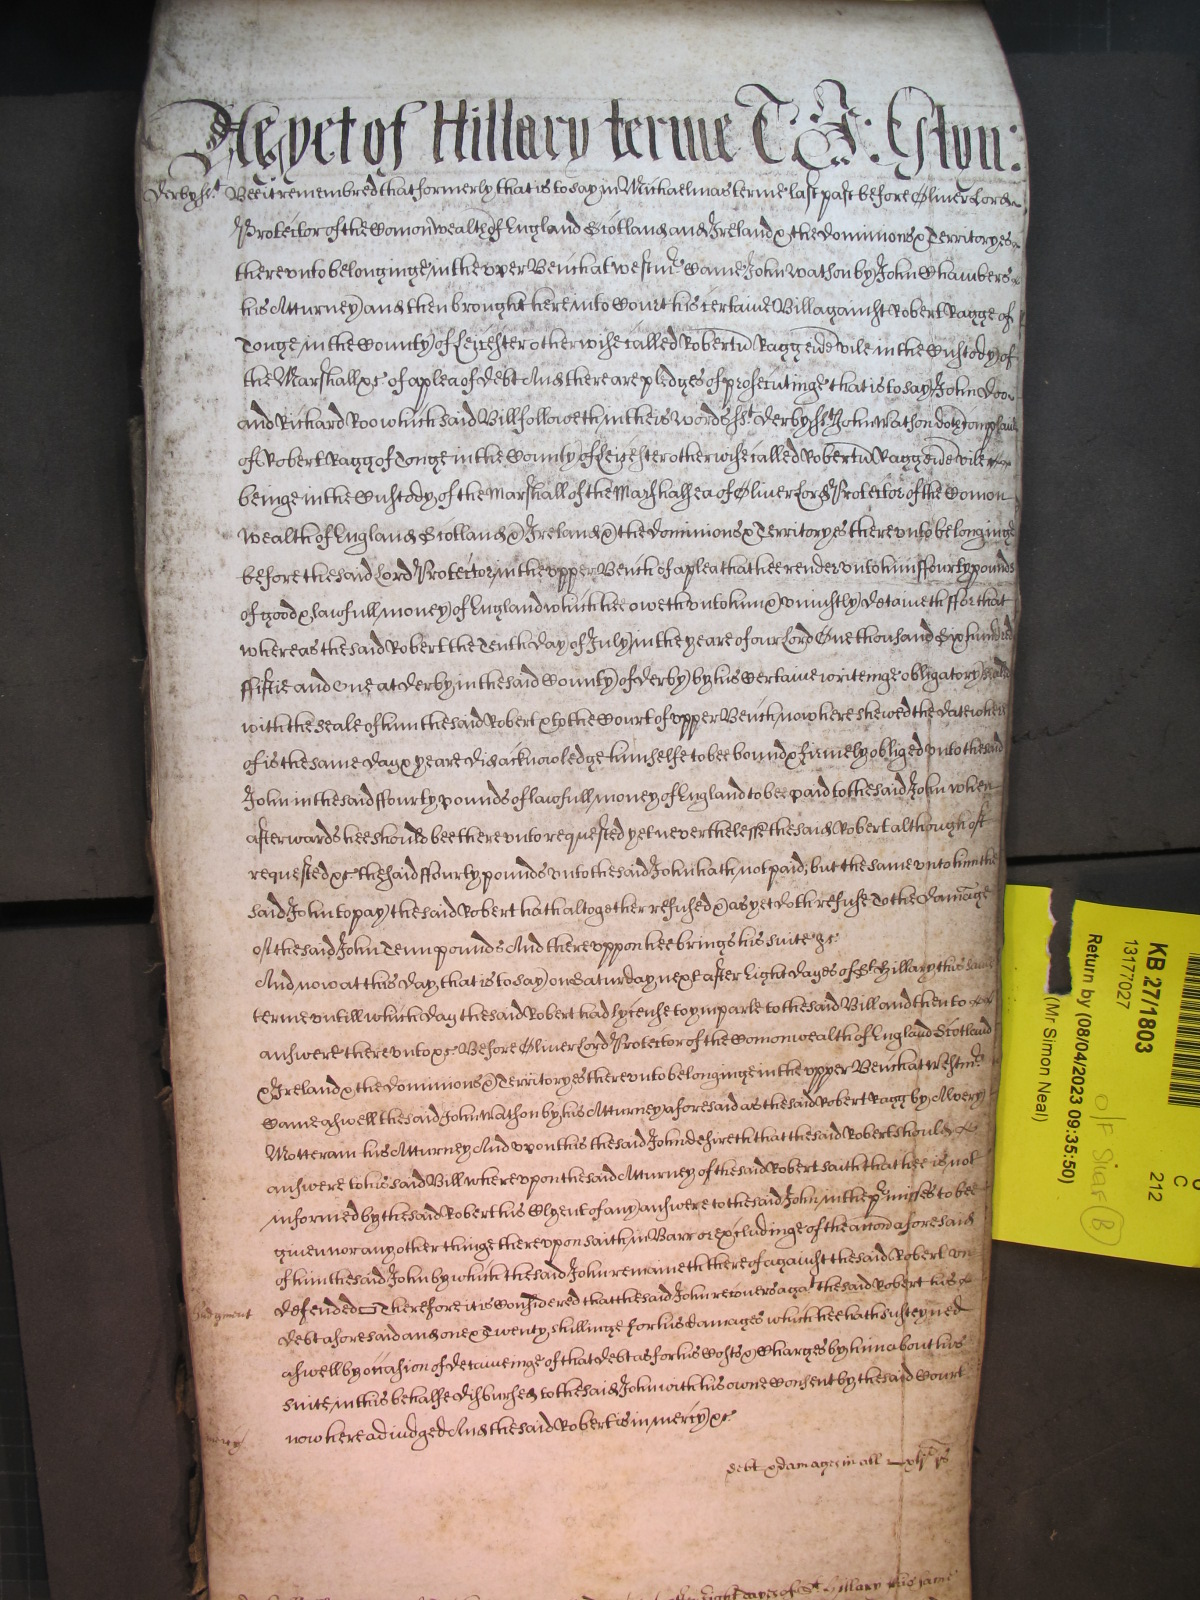 As yet of Hillary terme
Derby ss Bee it remembred that formerly that is to say in Michaelmas terme last past before Oliver Lord
Protector of the Comonwealth of England Scotland and Ireland & the dominions & Territoryes
thereunto belonginge in the upper Bench at Westmr Came John Watson by John Chambers
his Atturney and then brought here into Court his certaine Bill against Robert Ragge of
Tonge in the County of Leicester otherwise called Robertu Ragg de eadem vile in the Custody of
the Marshall &c of a plea of debt And there are pledges of prosecutinge that is to say John Doo
and Richard Roo which said Bill followeth in theis words ss Derby ss John Watson doth complaine
of Robert Ragg of Tonge in the County of Leicester otherwise called Robertu Ragg de eadem vile
beinge in the Custody of the Marshall of the Marshalsea of Oliver Lord Protector of the Comon
wealth of England Scotland & Ireland & the dominions & Territoryes thereunto belonginge
before the said Lord Protector in the upper Bench of a plea that hee render unto him ffourty pounds
of good & lawfull money of England which hee oweth unto him & uniustly detaineth ffor that
whereas the said Robert the Tenth day of July in the yeare of our Lord One thousand Six hundred
ffiftie and One at Derby in the said County of Derby by his Certaine writeinge obligatory sealed
with the seale of him the said Robert & to the Court of upper Bench now here shewed the date where
of is the same day & yeare did acknowledge himselfe to bee bound & firmely obliged unto the said
John in the said ffourty pounds of lawfull money of England to bee paid to the said John when
afterwards hee should bee thereunto requested yet neverthelesse the said Robert although oft
requested &c the said ffourty pounds unto the said John hath not paid, but the same unto him the
said John to pay the said Robert hath altogether refused & as yet doth refuse To the damage
of the said John Tenn pounds And thereuppon hee brings his suite &c
And now at this day that is to say on Saturday next after Eight dayes of St Hillary this same
terme untill which day the said Robert had lycense to ymparle to the said Bill and then to
answere thereunto &c Before Oliver Lord Protector of the Comonwealth of England Scotland
& Ireland & the dominions & Territoryes thereunto belonginge in the upper Bench at Westmr
Came aswell the said John Watson by his Atturney aforesaid as the said Robert Ragg by Alvery
Motteram his Atturney And upon this the said John desireth that the said Robert should
answere to his said Bill whereupon the said Atturney of the said Robert saith that hee is not
informed by the said Robert his Clyent of any answere to the said John in the pr misses to bee
given nor any other thinge thereupon saith in Barr or excludinge of the accon aforesaid
of him the said John by which the said John remaineth thereof against the said Robert un
Judgment defended Therefore it is Considered that the said John recovers agat the said Robert his
debt aforesaid and one & Twenty shillinge for his damages which hee hath susteyned
aswell by occasion of detaineinge of that debt as for his Costs & Charges by him about his
suite in this behalfe disbursed to the said John with his owne Consent by the said Court
mercy now here adiudged And the said Robert is in mercy &c
debt & damages in all
Eight dayes of St Hillary this same
KB 27/1803
13177027
Return by (08/04/2023 09:35:50)
(Mr Simon Neal)
C
212
O/F Shar B